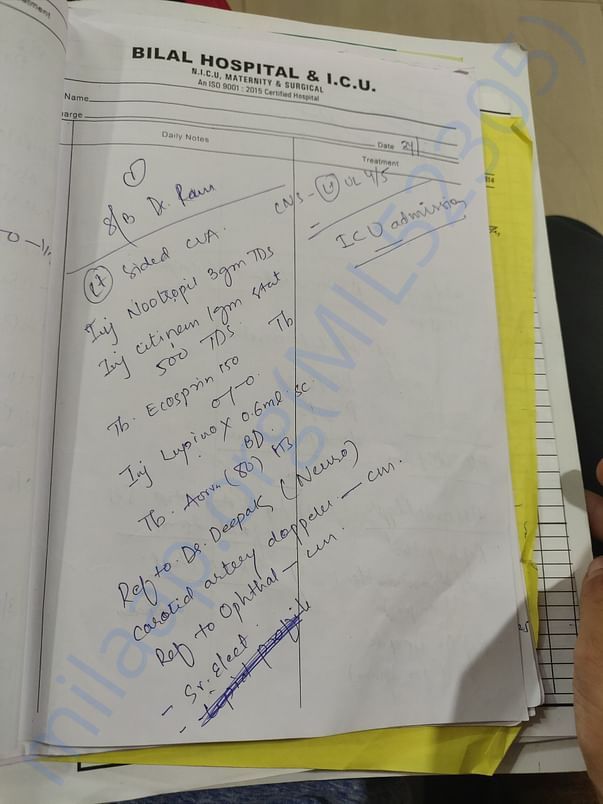 BILAL HOSPITAL & I.C.U.
N.I.C.U, MATERNITY & SURGICAL
An ISO 9001 : 2015 Certified Hospital
Name
arge
Date 24/
Daily Notes
Treatment
1
S/B Dr. Ram
CNS - Lt UL 4/5
ICU admission
Lt sided CVA.
Inj Nootropil 3gm TDS
Inj citinem 1gm stat
500 TDS.
Tb. Ecosprin 150
Tb
0-1-0.
Inj Lupinox 0.6ml SC.
BD.
Tb. (80) HS
Ref to. Dr. Deepak (Neuro)
Carotid artery doppler — cm.
Ref to Ophthal — cm.
- Sr. Elect.
- Lipid profile
milaap.org(MIL52305)